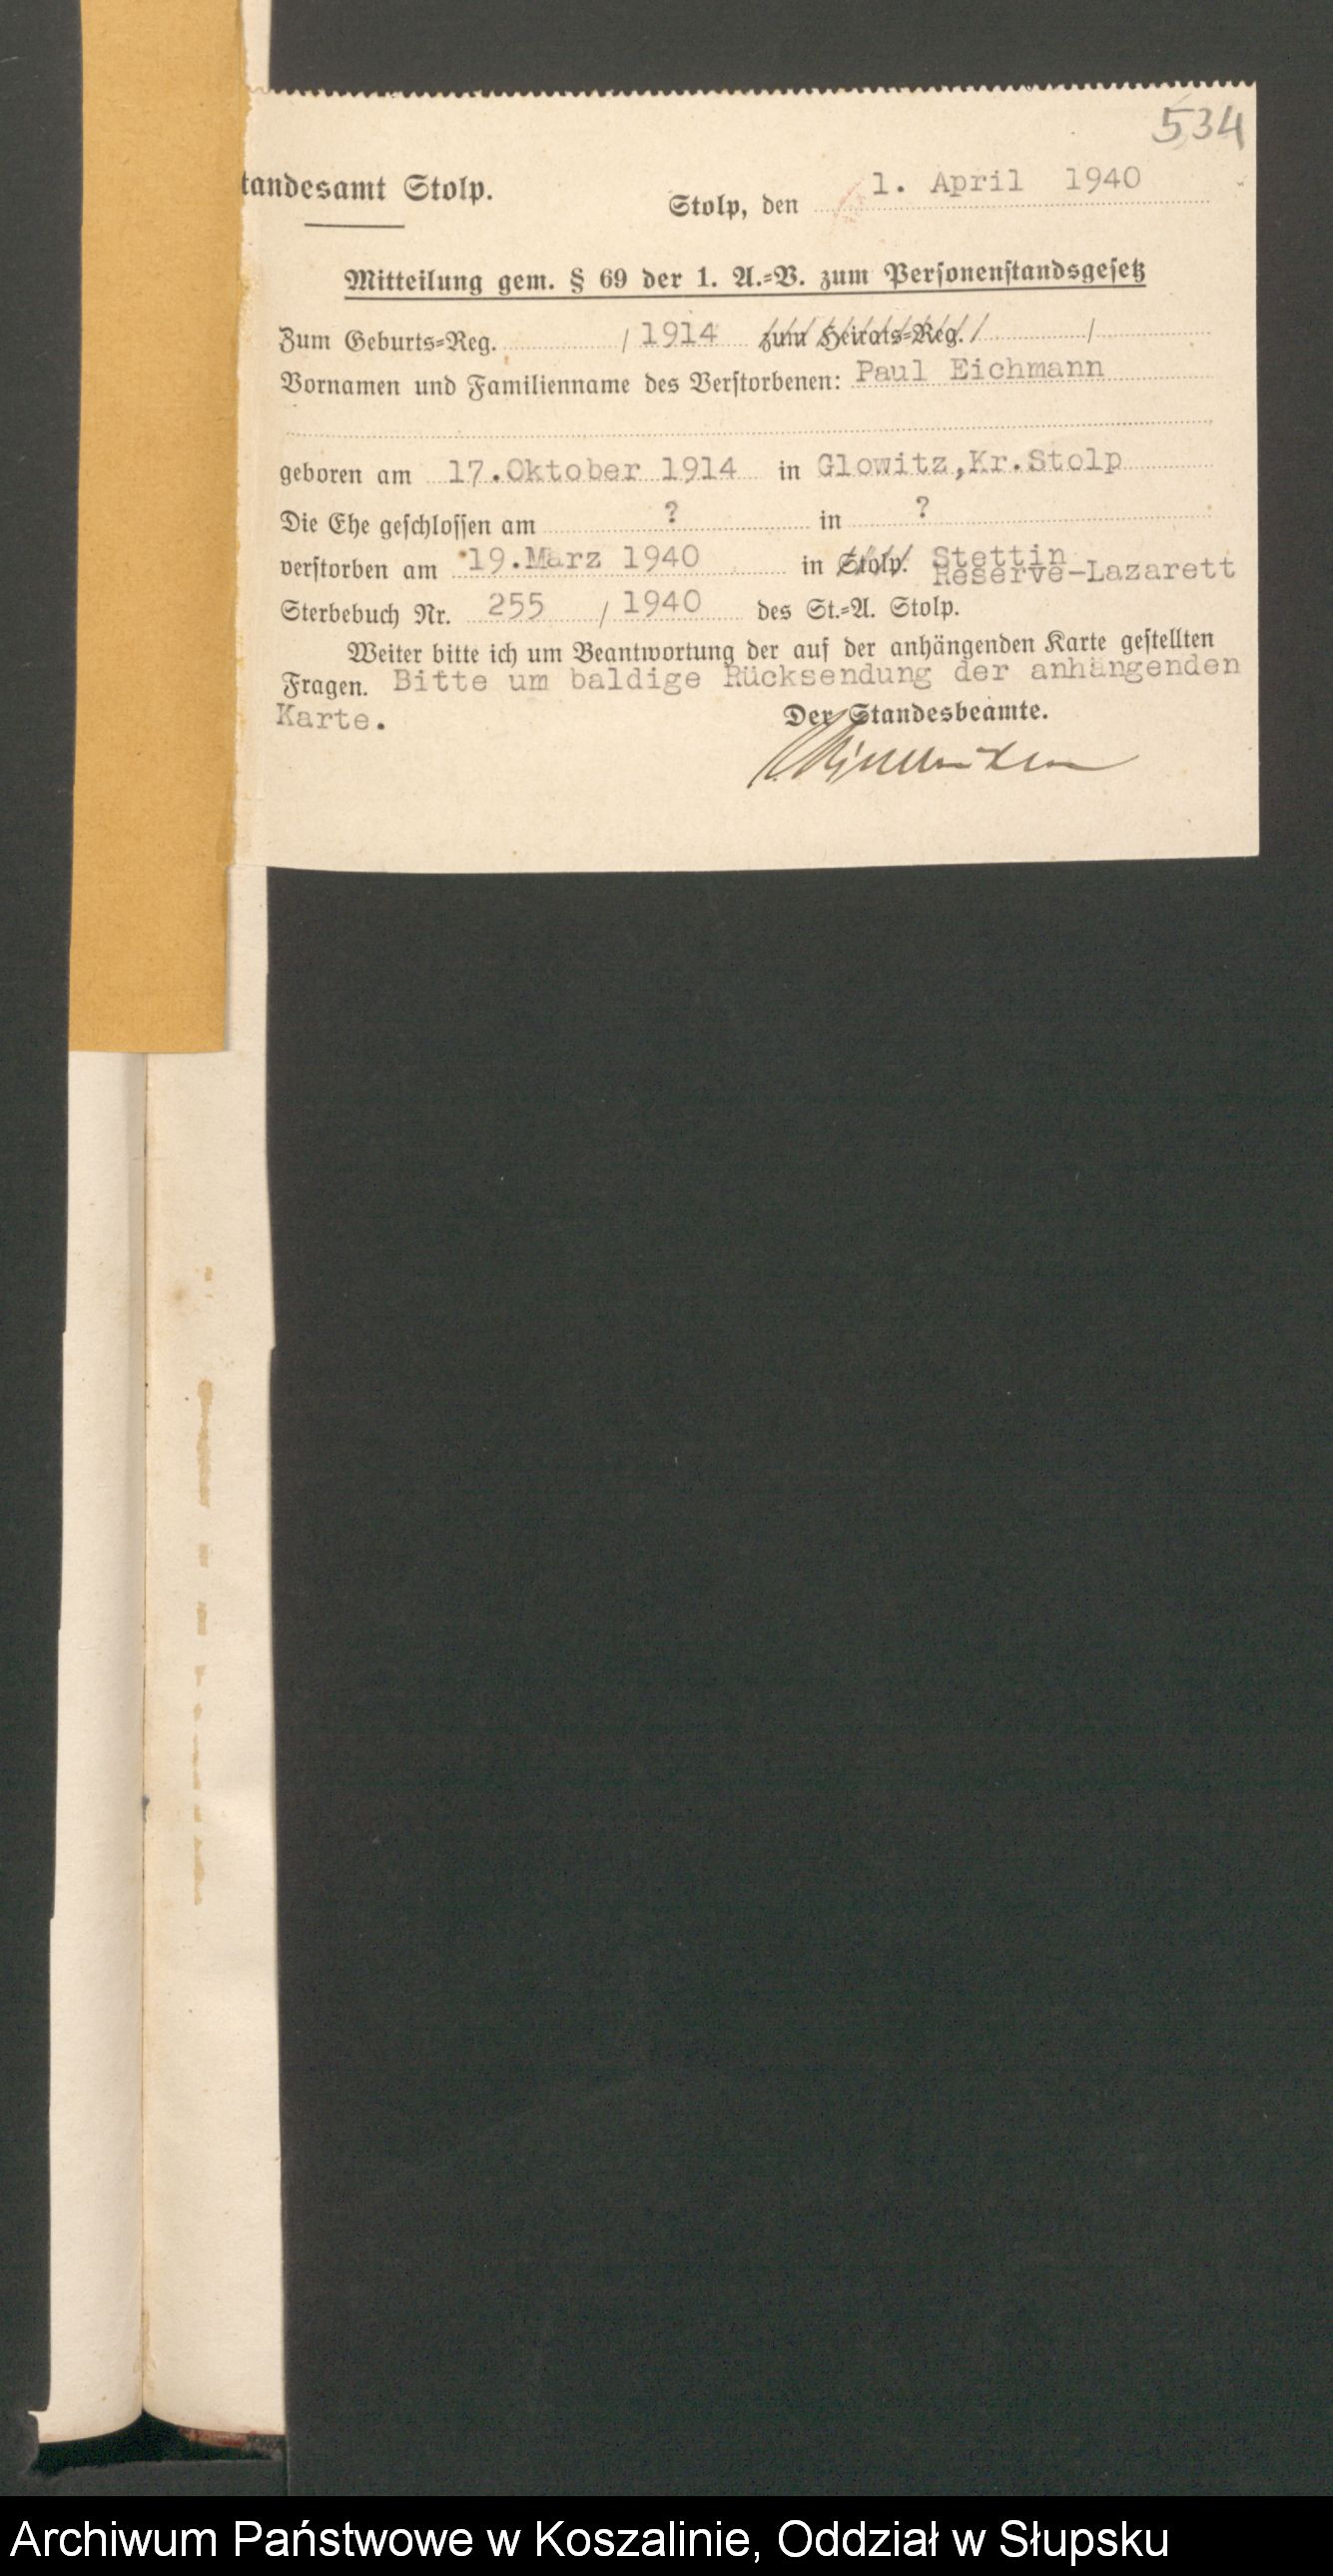 534
tandesamt Stolp.
Stolp, den 1. April 1940
Mitteilung gem. § 69 der 1. A.=V. zum Personenstandsgesetz
Zum Geburts=Reg. / 1914 zum Heirats=Reg. /
Vornamen und Familienname des Verstorbenen: Paul Eichmann
geboren am 17.Oktober 1914 in Glowitz,Kr.Stolp
Die Ehe geschlossen am ? in ?
verstorben am 19.März 1940 in Stolp. Stettin
Reserve-Lazarett
Sterbebuch Nr. 255 / 1940 des St.=A. Stolp.
Weiter bitte ich um Beantwortung der auf der anhängenden Karte gestellten
Fragen. Bitte um baldige Rücksendung der anhängenden
Karte.
Der Standesbeamte.
Archiwum Państwowe w Koszalinie, Oddział w Słupsku